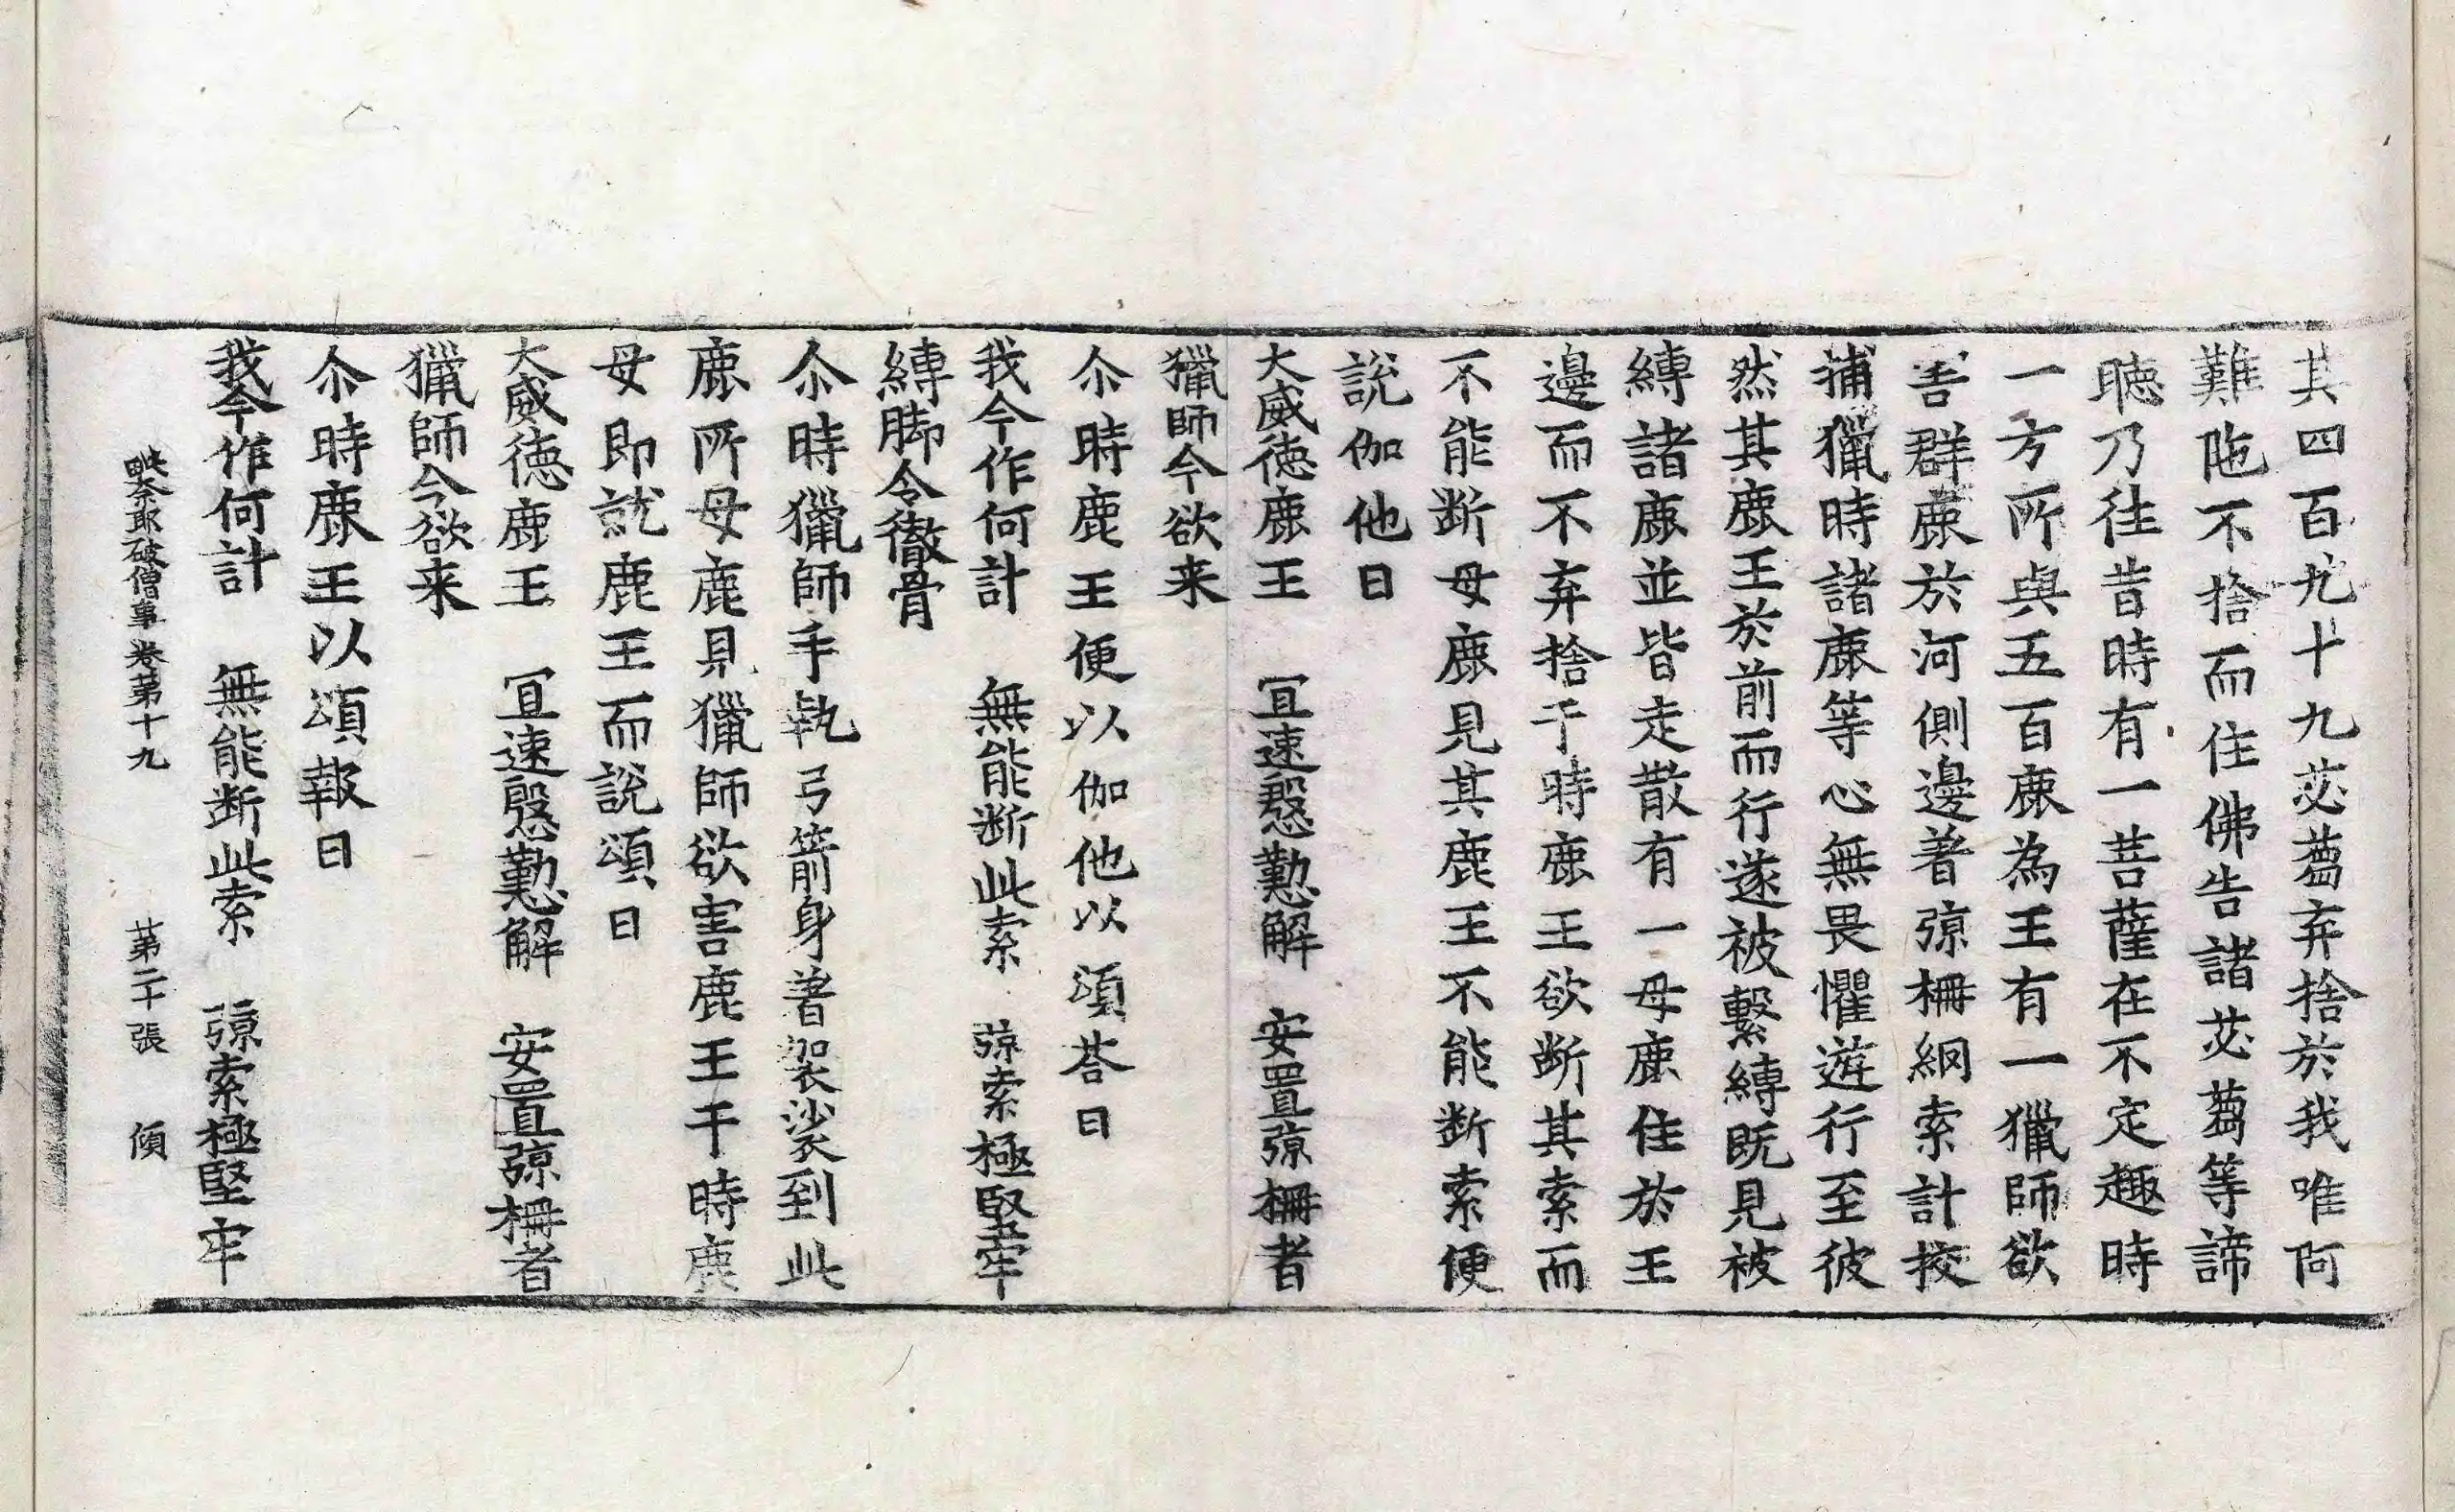 其四百九十九苾蒭弃捨於我唯阿
難陁不捨而住佛告諸苾蒭等諦
聴乃往昔時有一菩薩在不定趣時
一方所與五百鹿為王有一獵師欲
害群鹿於河側邊著弶柵網索計挍
捕獵時諸鹿等心無畏懼遊行至彼
然其鹿王於前而行遂被繫縛既見被
縛諸鹿並皆走散有一母鹿住於王
邊而不弃捨于時鹿王欲断其索而
不能断母鹿見其鹿王不能断索便
說伽他曰
大威德鹿王　冝速慇懃解　安置弶柵者
獵師今欲来
尒時鹿王便以伽他以頌荅曰
我今作何計　無能断此索　弶索極堅牢
縛脚令徹骨
尒時獵師手執弓箭身著袈裟到此
鹿所母鹿見獵師欲害鹿王于時鹿
母即就鹿王而說頌曰
大威德鹿王　冝速慇懃解　安置弶柵者
獵師今欲来
尒時鹿王以頌報曰
我今作何計　無能断此索　弶索極堅牢
毗奈耶破僧事卷第十九　第二十張　傾